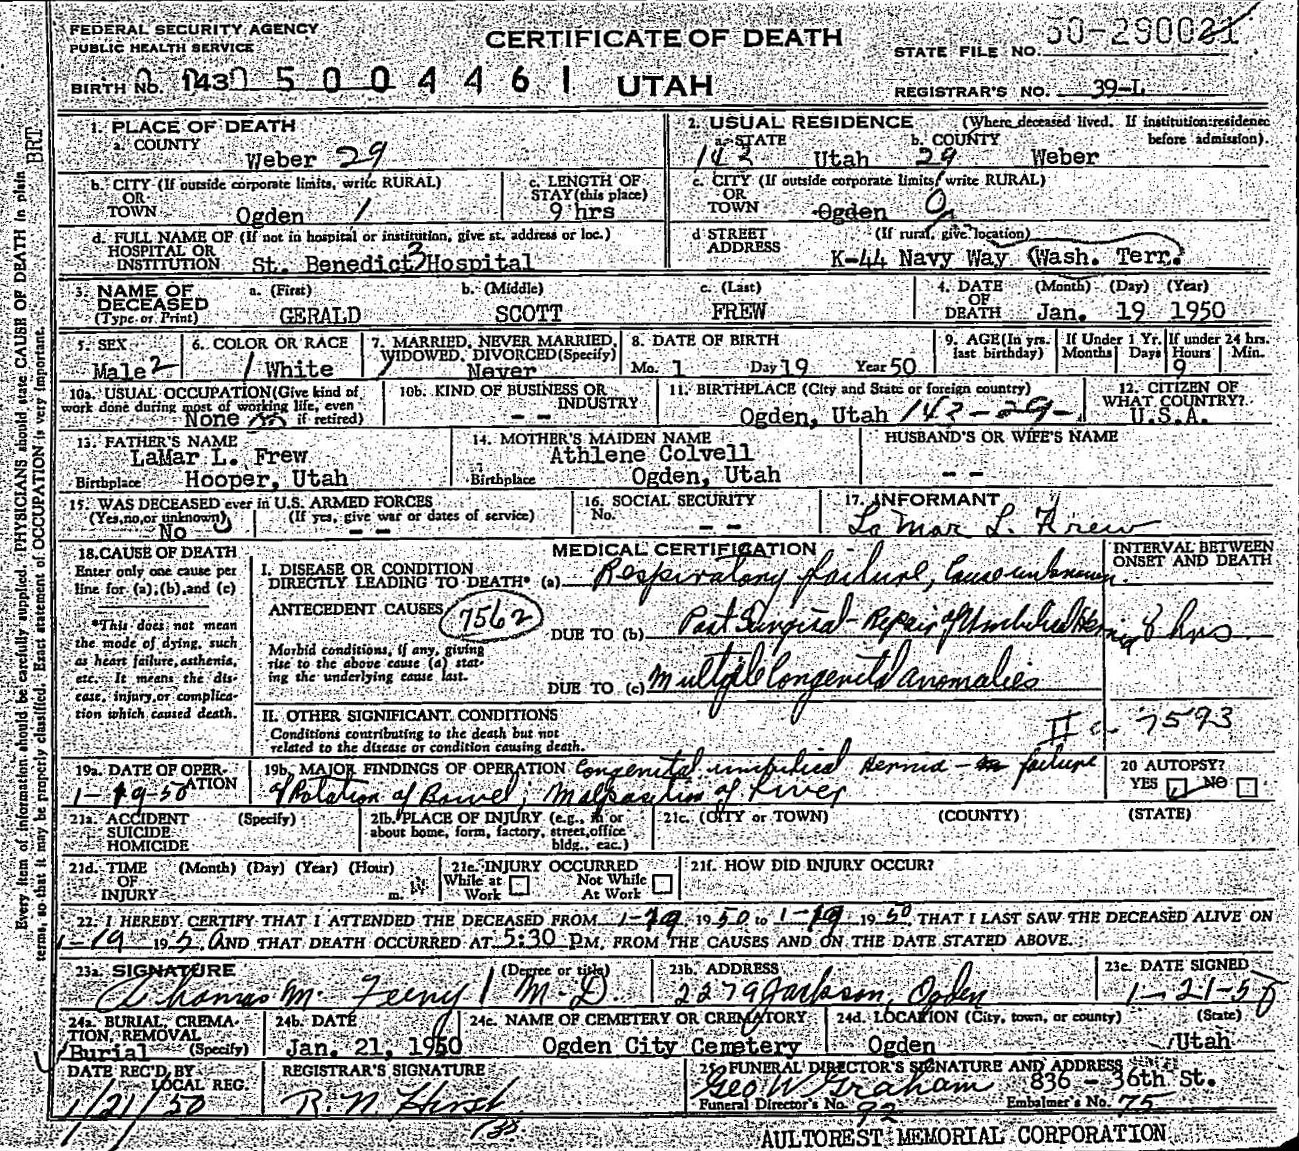 FEDERAL SECURITY AGENCY
PUBLIC HEALTH SERVICE
CERTIFICATE OF DEATH
STATE FILE NO. 50-290021
BIRTH NO. 143 0 5 0 0 4 4 6 1 UTAH
REGISTRAR'S NO. 39-L
Every item of information should be carefully supplied. PHYSICIANS should state CAUSE OF DEATH in plain
terms, so that it may be properly classified. Exact statement of OCCUPATION is very important.
BRT
1. PLACE OF DEATH
a. COUNTY
Weber 29
2. USUAL RESIDENCE (Where deceased lived. If institution: residence before admission).
a. STATE b. COUNTY
143 Utah 29 Weber
b. CITY (If outside corporate limits, write RURAL)
OR
TOWN Ogden 1
c. LENGTH OF
STAY (this place)
9 hrs
c. CITY (If outside corporate limits, write RURAL)
OR
TOWN Ogden 0
d. FULL NAME OF (If not in hospital or institution, give st. address or loc.)
HOSPITAL OR
INSTITUTION St. Benedict 3 Hospital
d STREET (If rural, give location)
ADDRESS
K-44 Navy Way (Wash. Terr.
3. NAME OF DECEASED (Type or Print)
a. (First) b. (Middle) c. (Last)
GERALD SCOTT FREW
4. DATE OF DEATH (Month) (Day) (Year)
Jan. 19 1950
5. SEX
Male 2
6. COLOR OR RACE
1 White
7. MARRIED, NEVER MARRIED, WIDOWED, DIVORCED (Specify)
Never
8. DATE OF BIRTH
Mo. 1 Day 19 Year 50
9. AGE (In yrs. last birthday) If Under 1 Yr. Months Days If under 24 hrs. Hours Min.
9
10a. USUAL OCCUPATION (Give kind of work done during most of working life, even if retired)
None
10b. KIND OF BUSINESS OR INDUSTRY
- -
11. BIRTHPLACE (City and State or foreign country)
Ogden, Utah 143-29-
12. CITIZEN OF WHAT COUNTRY?
U.S.A.
13. FATHER'S NAME
LaMar L. Frew
Birthplace Hooper, Utah
14. MOTHER'S MAIDEN NAME
Athlene Colvell
Birthplace Ogden, Utah
HUSBAND'S OR WIFE'S NAME
- -
15. WAS DECEASED ever in U.S. ARMED FORCES
(Yes, no, or unknown) (If yes, give war or dates of service)
No - -
16. SOCIAL SECURITY
No. - -
17. INFORMANT
La Mar L. Frew
18. CAUSE OF DEATH
Enter only one cause per
line for (a), (b), and (c)
*This does not mean
the mode of dying, such
as heart failure, asthenia,
etc. It means the dis-
ease, injury, or complica-
tion which caused death.
MEDICAL CERTIFICATION
INTERVAL BETWEEN ONSET AND DEATH
I. DISEASE OR CONDITION
DIRECTLY LEADING TO DEATH* (a) Respiratory failure, cause unknown.
ANTECEDENT CAUSES 7562
DUE TO (b) Post Surgical - Repair of Umbilical Hernia 8 hrs
Morbid conditions, if any, giving
rise to the above cause (a) stat-
ing the underlying cause last.
DUE TO (c) Multiple Congenital anomalies
II. OTHER SIGNIFICANT CONDITIONS
Conditions contributing to the death but not
related to the disease or condition causing death.
II c. 7593
19a. DATE OF OPERATION
1-19-50
19b. MAJOR FINDINGS OF OPERATION Congenital umbilical Hernia - failure
of Rotation of Bowel; Malposition of Liver
20 AUTOPSY?
YES NO
21a. ACCIDENT (Specify)
SUICIDE
HOMICIDE
21b. PLACE OF INJURY (e.g., in or
about home, form, factory, street, office
bldg., eac.)
21c. (CITY or TOWN) (COUNTY) (STATE)
21d. TIME (Month) (Day) (Year) (Hour)
OF
INJURY m.
21e. INJURY OCCURRED
While at Work Not While At Work
21f. HOW DID INJURY OCCUR?
22. I HEREBY CERTIFY THAT I ATTENDED THE DECEASED FROM 1-19 1950 to 1-19 1950, THAT I LAST SAW THE DECEASED ALIVE ON
1-19 1950, AND THAT DEATH OCCURRED AT 5:30 pM, FROM THE CAUSES AND ON THE DATE STATED ABOVE.
23a. SIGNATURE (Degree or title)
Thomas M. Feeny M.D.
23b. ADDRESS
2279 Jackson, Ogden
23c. DATE SIGNED
1-21-50
24a. BURIAL, CREMA-
TION, REMOVAL
Burial (Specify)
24b. DATE
Jan. 21, 1950
24c. NAME OF CEMETERY OR CREMATORY
Ogden City Cemetery
24d. LOCATION (City, town, or county) (State)
Ogden Utah
DATE REC'D BY LOCAL REG.
1/21/50
REGISTRAR'S SIGNATURE
R. N. Hirst
25. FUNERAL DIRECTOR'S SIGNATURE AND ADDRESS
Geo W Graham 836 - 36th St.
Funeral Director's No. 92 Embalmer's No. 75
AULTOREST MEMORIAL CORPORATION